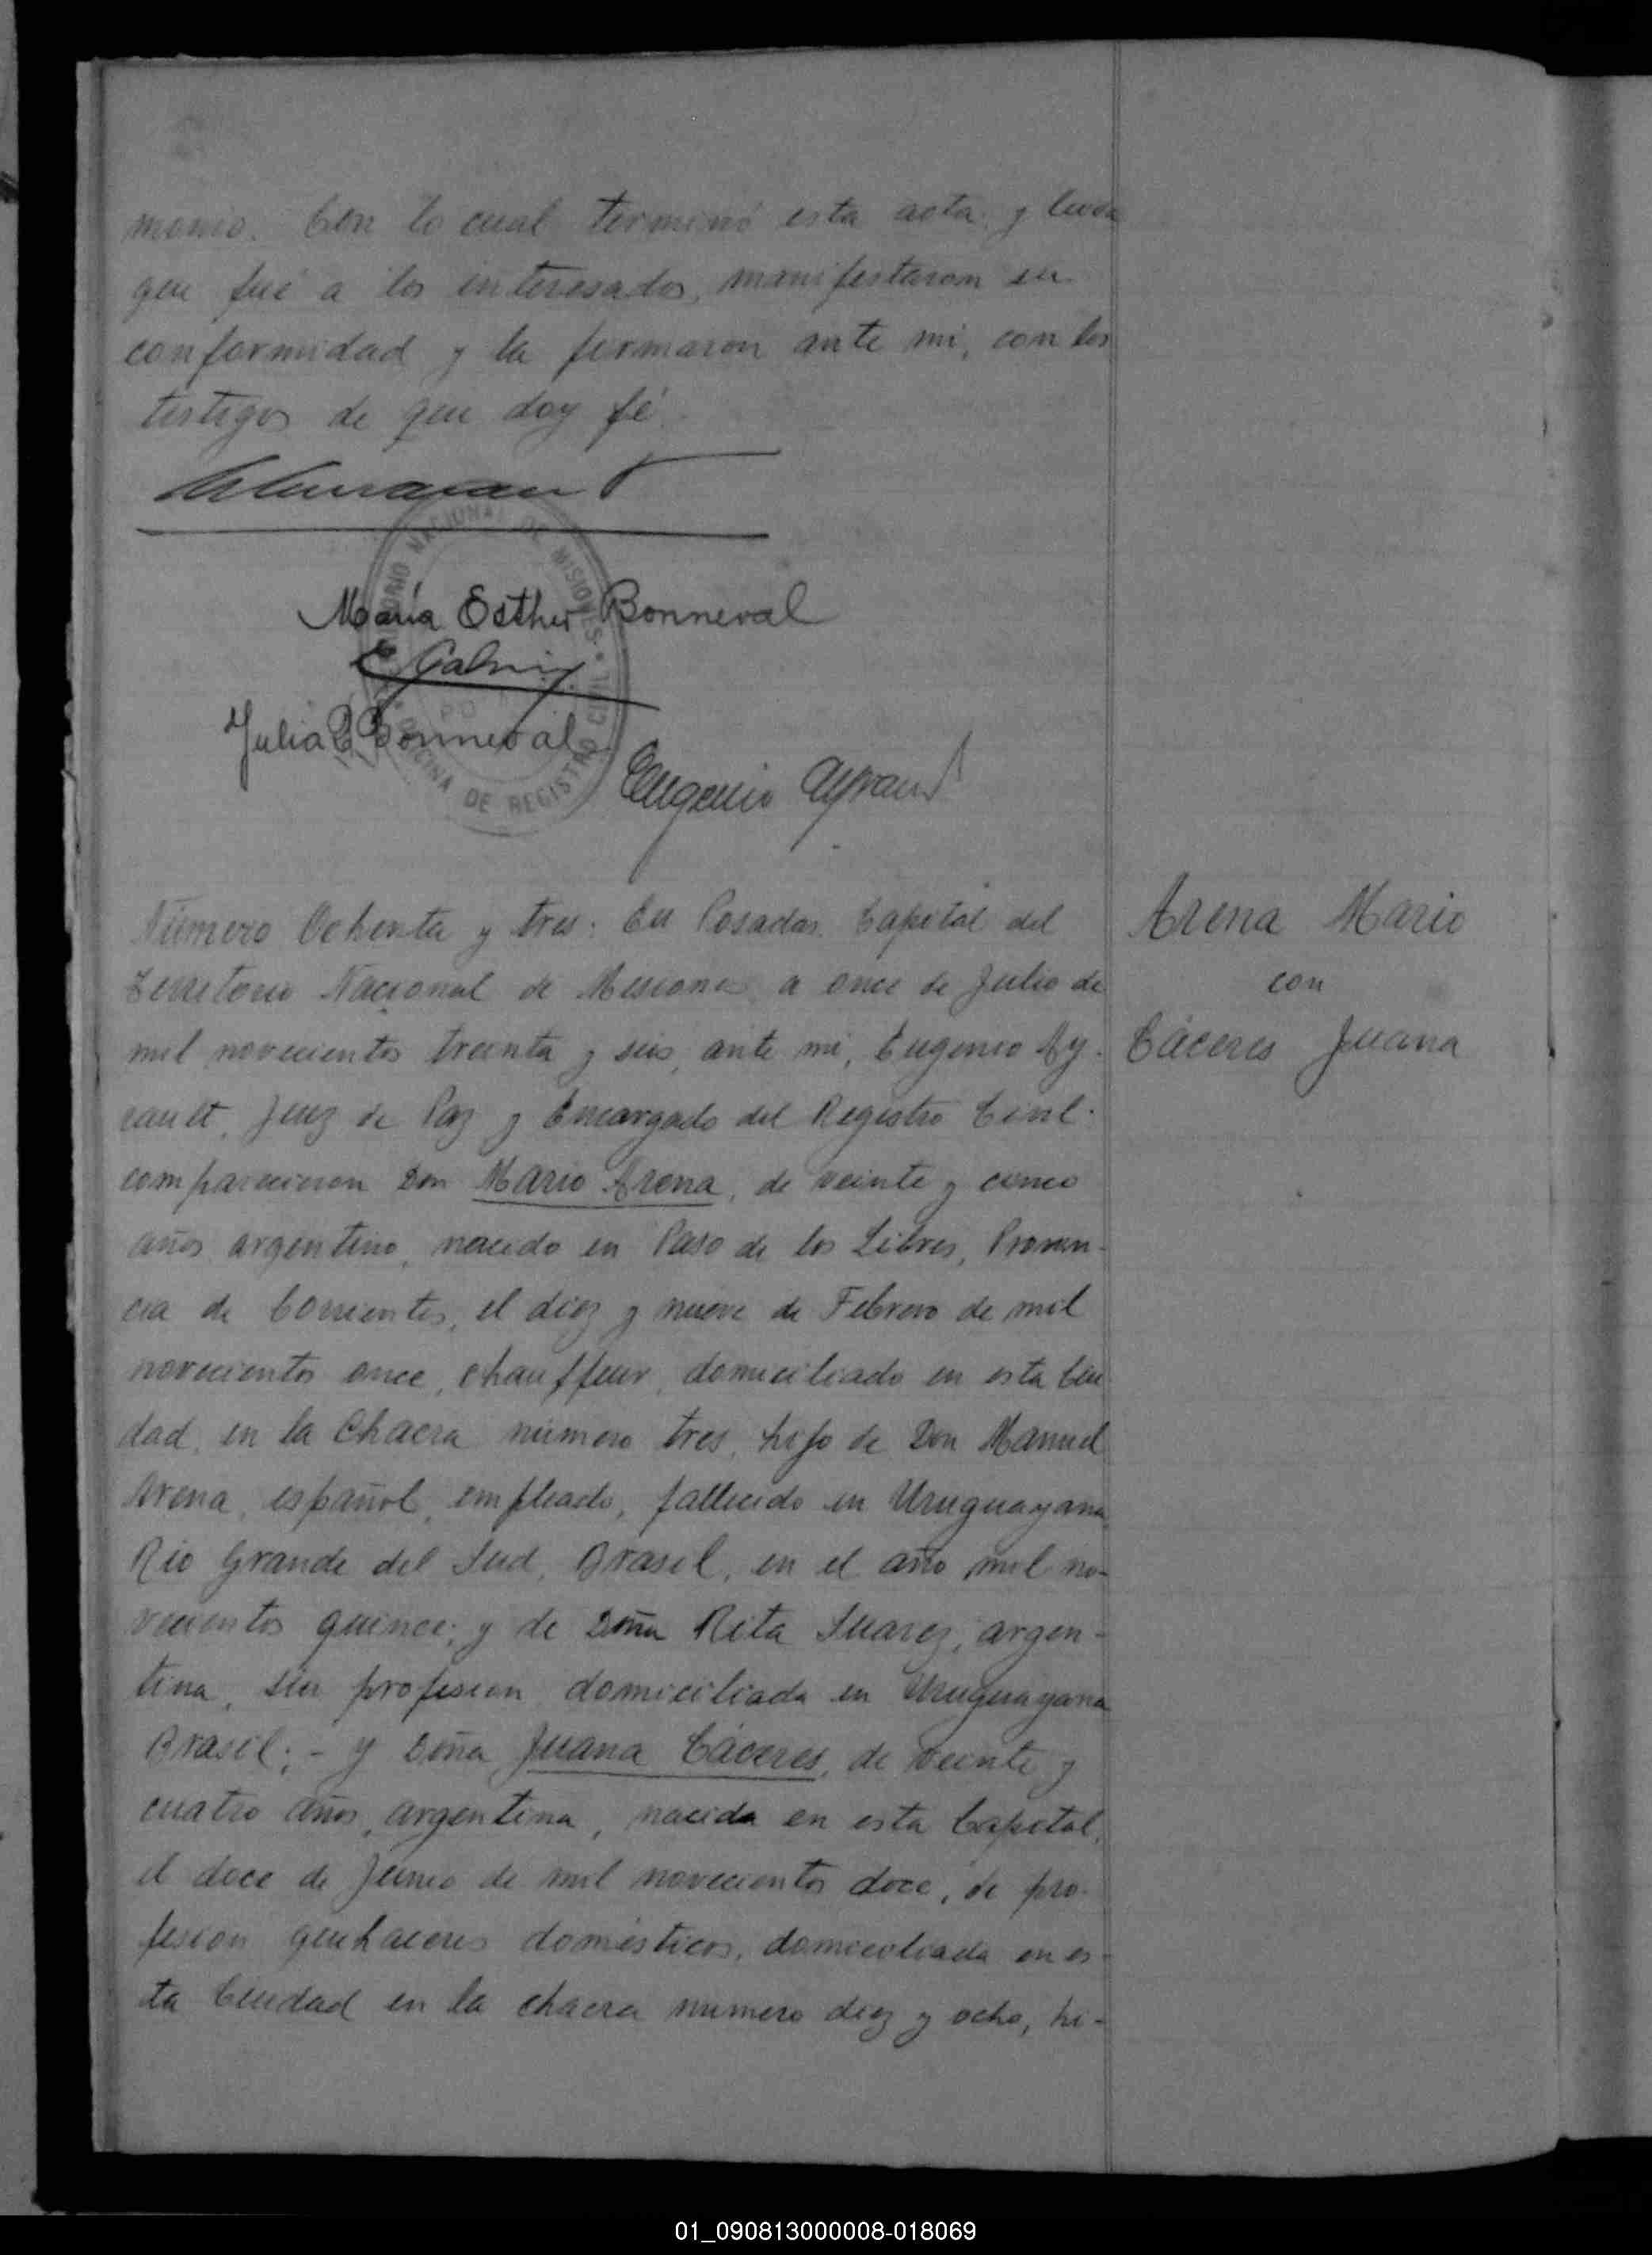 monio. Con lo cual terminó esta acta y leida
que fué a los interesados, manifestaron su
conformidad y la firmaron ante mi, con los
testigos de que doy fé.
María Esther Bonneval
Julia Bonneval
Eugenio Aycault
TERRITORIO NACIONAL DE MISIONES • OFICINA DE REGISTRO CIVIL
Número Ochenta y tres: En Posadas Capital del
Territorio Nacional de Misiones a once de Julio de
mil novecientos treinta y seis, ante mi, Eugenio Ay-
cault, Juez de Paz y Encargado del Registro Civil
comparecieron Don Mario Arena, de veinte y cinco
años argentino, nacido en Paso de los Libres, Provin-
cia de Corrientes, el diez y nueve de Febrero de mil
novecientos once, chauffeur, domiciliado en esta Ciu
dad, en la Chacra número tres, hijo de Don Manuel
Arena, español, empleado, fallecido en Uruguayana
Rio Grande del Sud, Brasil, en el año mil no-
vecientos quince; y de Doña Rita Suarez, argen-
tina, sin profesion domiciliada en Uruguayana
Brasil; - y Doña Juana Cáceres, de veinte y
cuatro años, argentina, nacida en esta Capital,
el doce de Junio de mil novecientos doce, de pro-
fesion quehaceres domésticos, domiciliada en es-
ta Ciudad en la chacra numero diez y ocho, hi-
Arena Mario
con
Cáceres Juana
01_090813000008-018069